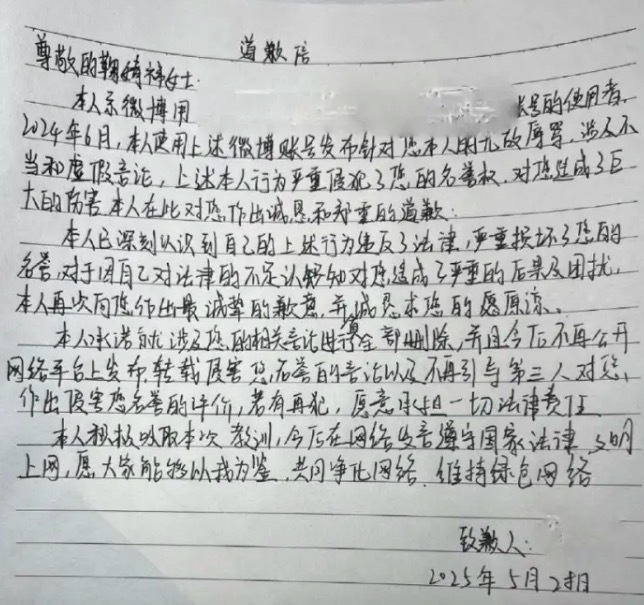 道歉信
尊敬的鞠婧祎女士:
本人系微博用 账号的使用者,
2024年6月,本人使用上述微博账号发布针对您本人的无故辱骂,涉及不
当和虚假言论,上述本人行为严重侵犯了您的名誉权,对您造成了巨
大的伤害,本人在此对您作出诚恳和郑重的道歉:
本人已深刻认识到自己的上述行为违反了法律,严重损坏了您的
名誉,对于因自己对法律的不足认知对您造成了严重的后果及困扰,
本人再次向您作出最诚挚的歉意,并诚恳求您的原谅。
本人承诺就涉及您的相关言论进行全部删除,并且今后不再公开
网络平台上发布、转载侵害您名誉的言论以及不再引导第三人对您
作出侵害您名誉的评价,若有再犯,愿意承担一切法律责任
本人积极吸取本次教训,今后在网络发言遵守国家法律,文明
上网,愿大家能够以我为鉴,共同净化网络,维持绿色网络
致歉人:
2025年5月28日